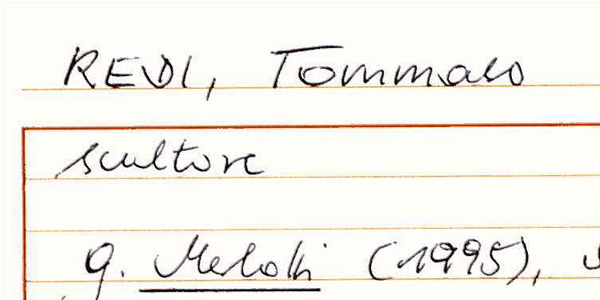 REDI, Tommaso
scultore
g. Melotti (1995),